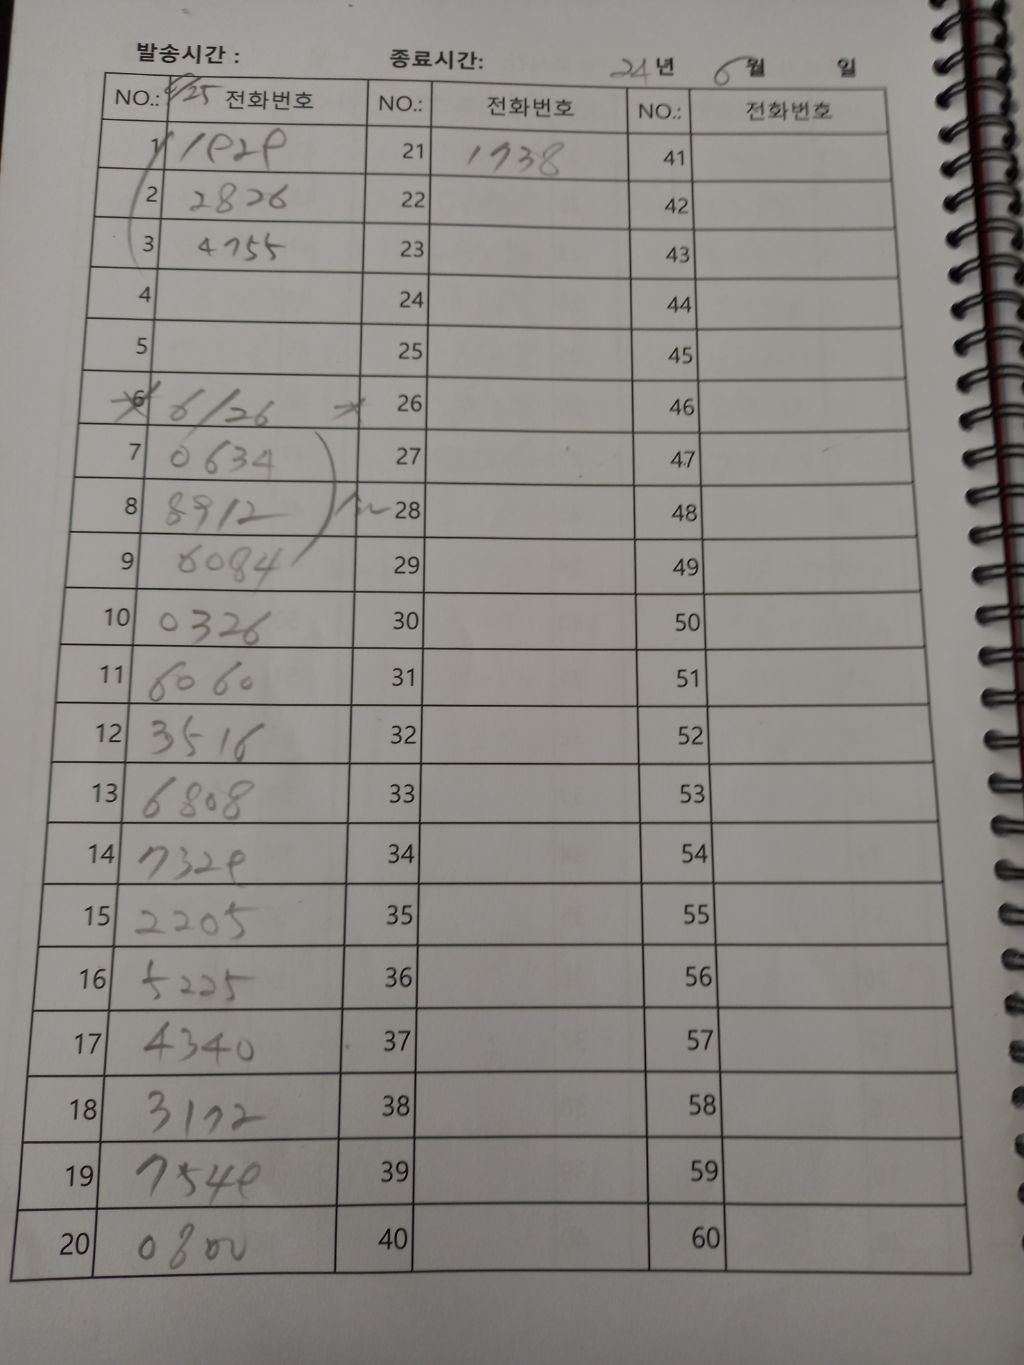 발송시간 : 종료시간: 24년 6월 일
NO.: 6/25 전화번호 NO.: 전화번호 NO.: 전화번호
1 1929 21 1738 41
2 2826 22 42
3 4755 23 43
4 24 44
5 25 45
6 6/26 26 46
7 0634 27 47
8 8912 28 48
9 6084 29 49
10 0326 30 50
11 6060 31 51
12 3516 32 52
13 6808 33 53
14 7329 34 54
15 2205 35 55
16 5225 36 56
17 4340 37 57
18 3172 38 58
19 7549 39 59
20 0800 40 60